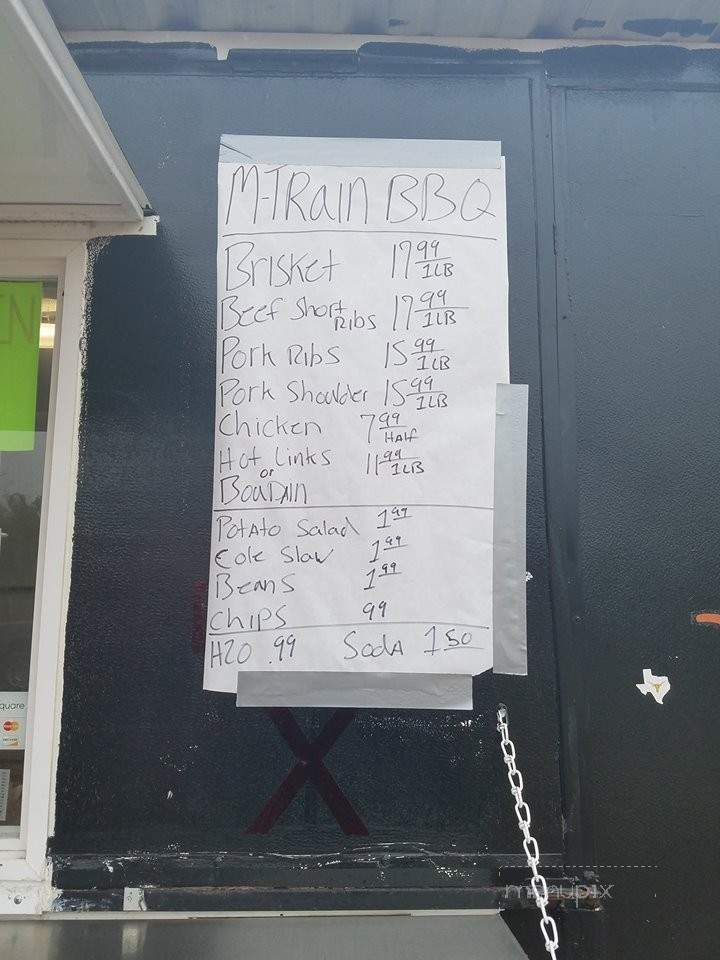 M-TRain BBQ
Brisket 17 99/1LB
Beef Short Ribs 17 99/1LB
Pork Ribs 15 99/1LB
Pork Shoulder 15 99/1LB
Chicken 7 99/HALF
Hot Links 11 99/1LB
or
BOUDAIN
POTATO Salad 1 99
Cole Slaw 1 99
Beans 1 99
chips 99
H2O .99 SodA 1 50
EN
quare
menupix